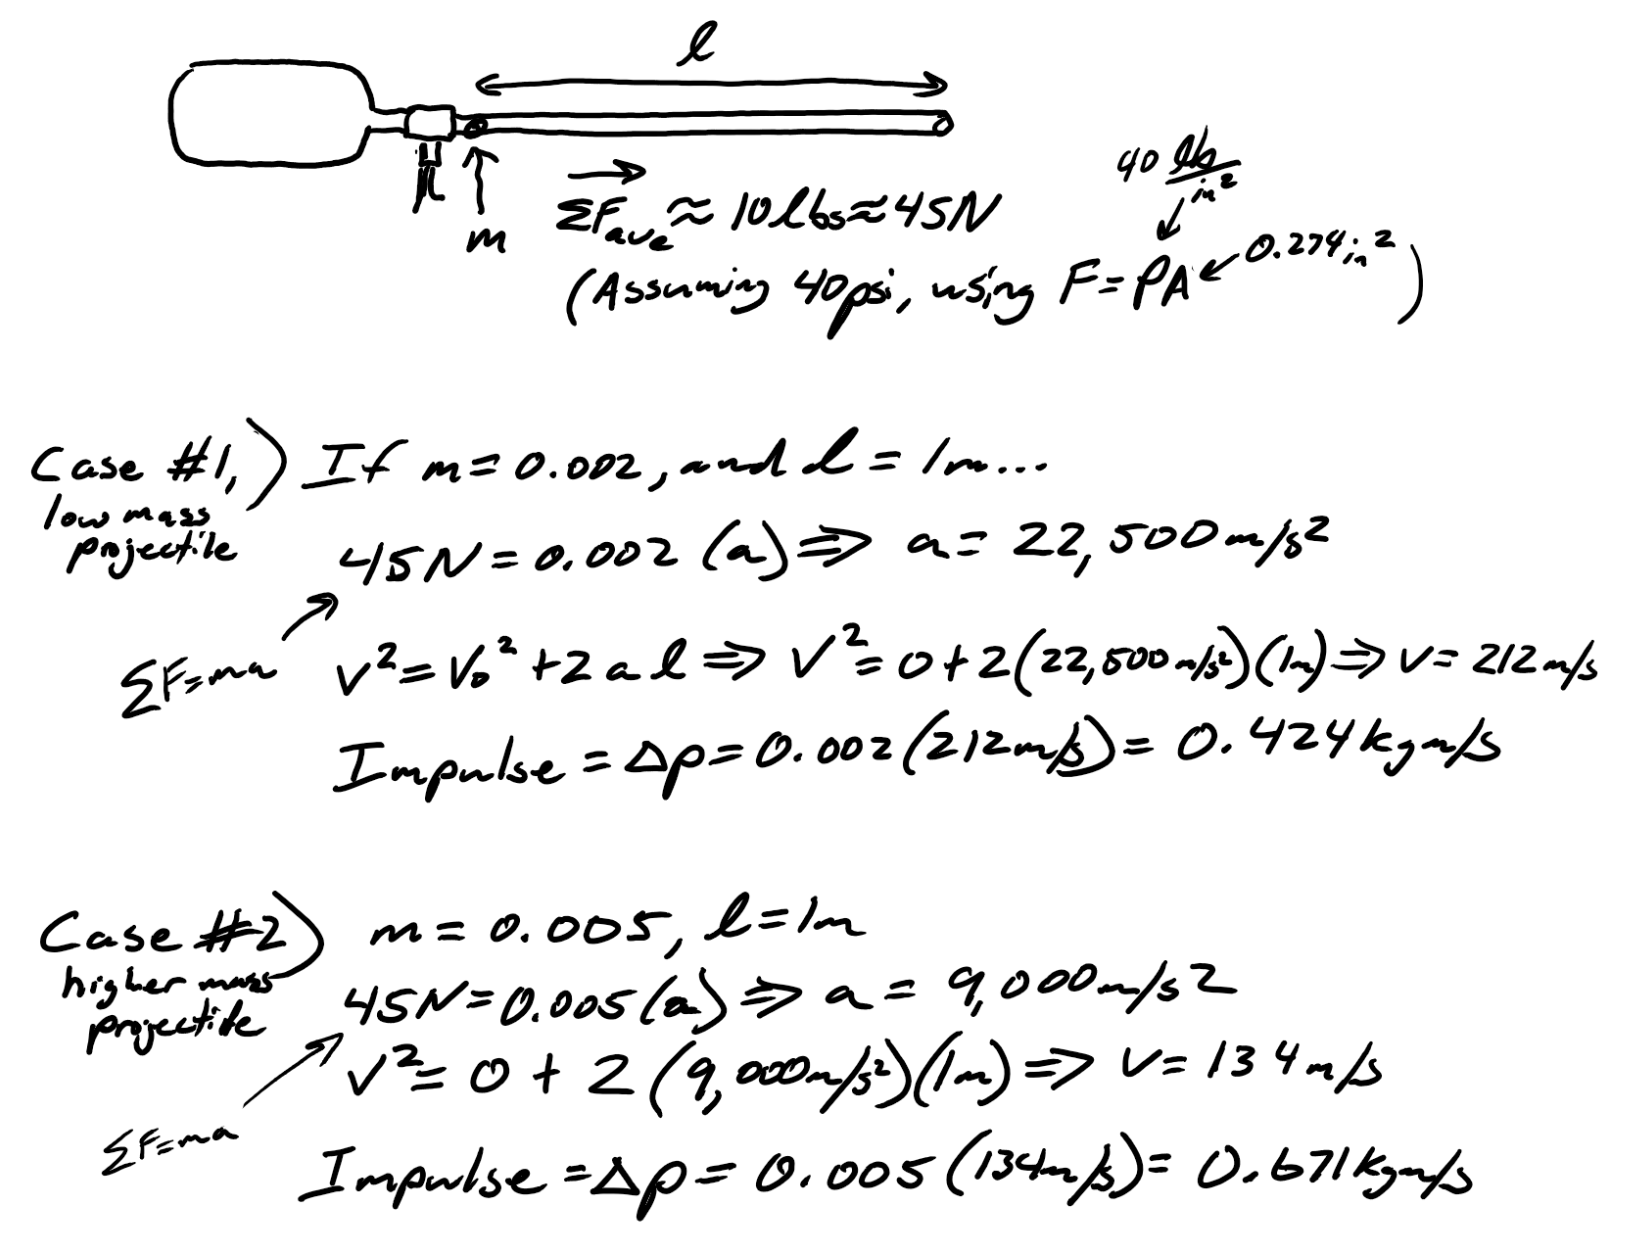 l
m
40 lb/in²
ΣF_ave ≈ 10lbs ≈ 45N
0.274in²
(Assuming 40psi, using F = PA)
Case #1,
low mass
projectile
If m = 0.002, and l = 1m...
45N = 0.002 (a) ⇒ a = 22,500m/s²
ΣF=ma
v² = V₀² + 2al ⇒ v² = 0 + 2(22,500m/s²)(1m) ⇒ v = 212m/s
Impulse = Δp = 0.002(212m/s) = 0.424kgm/s
Case #2
higher mass
projectile
m = 0.005, l = 1m
45N = 0.005(a) ⇒ a = 9,000m/s2
v² = 0 + 2(9,000m/s²)(1m) ⇒ v = 134m/s
ΣF=ma
Impulse = Δp = 0.005(134m/s) = 0.671kgm/s